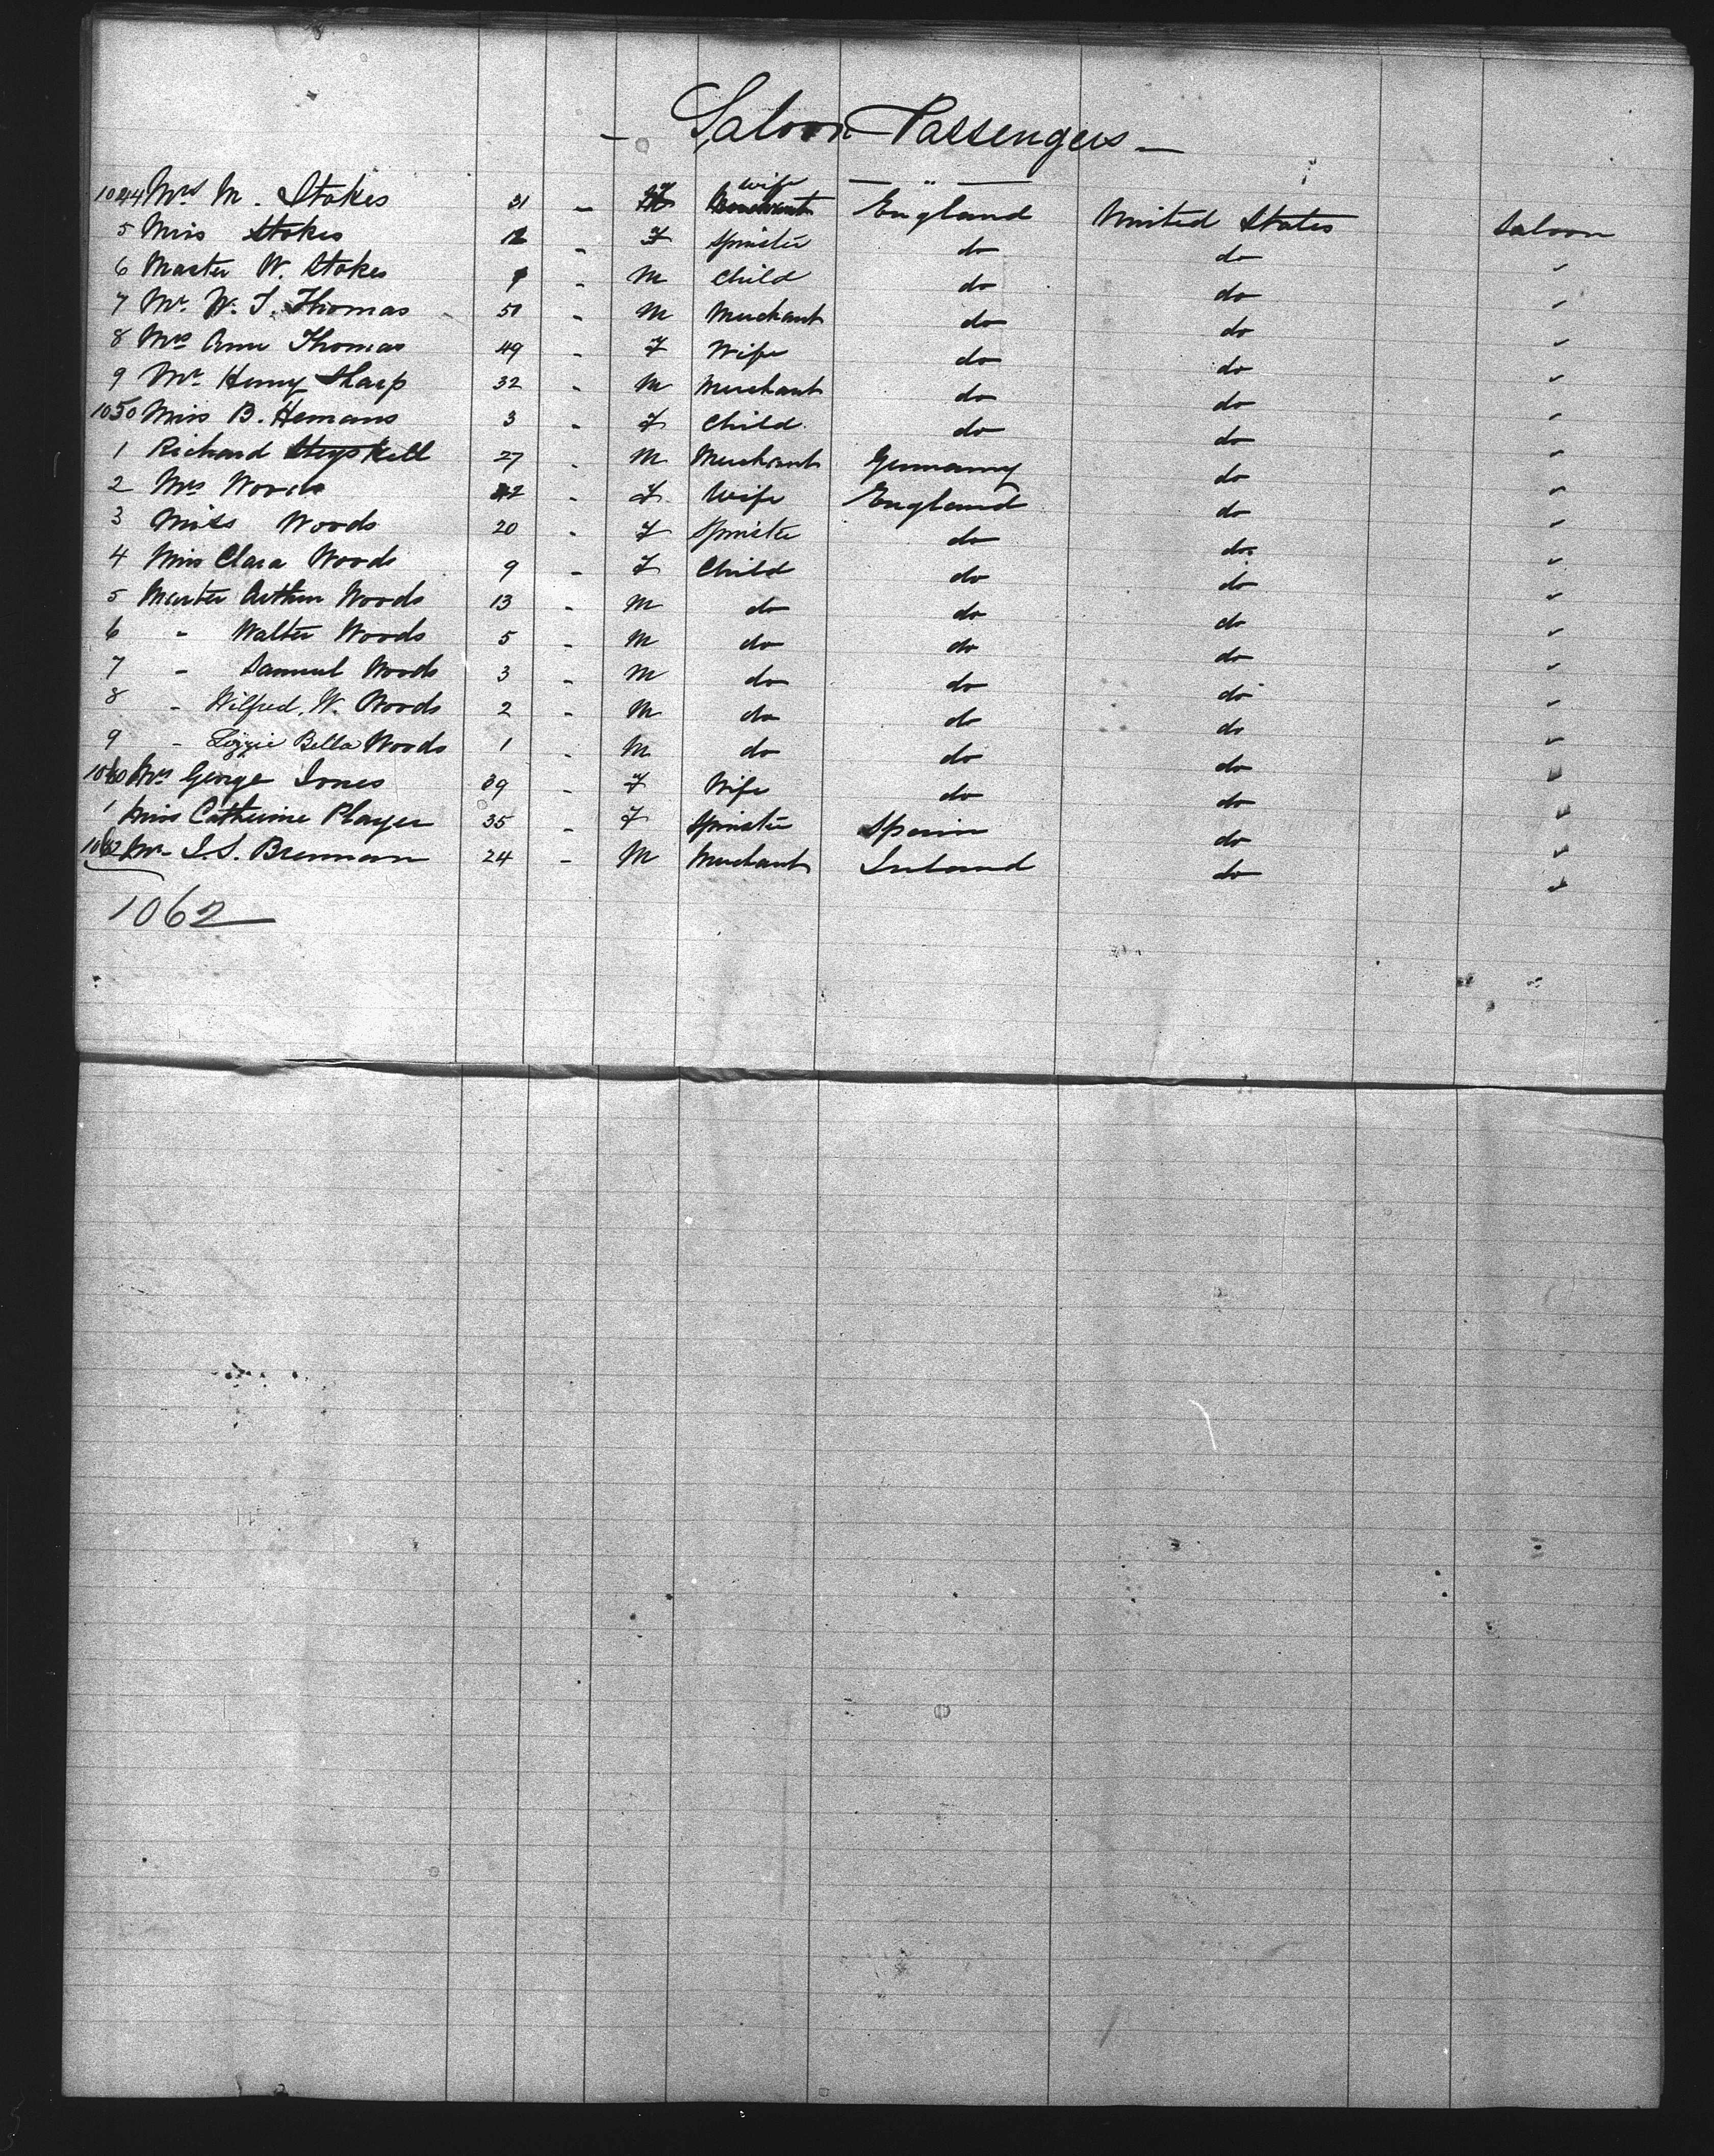 - Saloon Passengers -
1044 Mrs M. Stokes 31 - F wife England United States Saloon
5 Miss Stokes - F Spinster do do "
6 Master W. Stokes - M Child do do "
7 Mr. W. J. Thomas 50 - M Merchant do do "
8 Mrs Ann Thomas 49 - F Wife do do "
9 Mr Henry Sharp 32 - M Merchant do do "
1050 Miss B. Hemans 3 - F Child do do "
1 Richard Heyskell 27 - M Merchant Germany do "
2 Mrs Woods 42 - F Wife England do "
3 Miss Woods 20 - F Spinster do do "
4 Miss Clara Woods 9 - F Child do do "
5 Master Arthur Woods 13 - M do do do "
6 " Walter Woods 5 - M do do do "
7 " Samuel Woods 3 - M do do do "
8 " Wilfred. W. Woods 2 - M do do do "
9 " Lizzie Bella Woods 1 - M do do do "
1060 Mrs George Jones 39 - F Wife do do "
1 Miss Catherine Player 35 - F Spinster Spain do "
1062 Mr J. S. Brennan 24 - M Merchant Ireland do "
1062